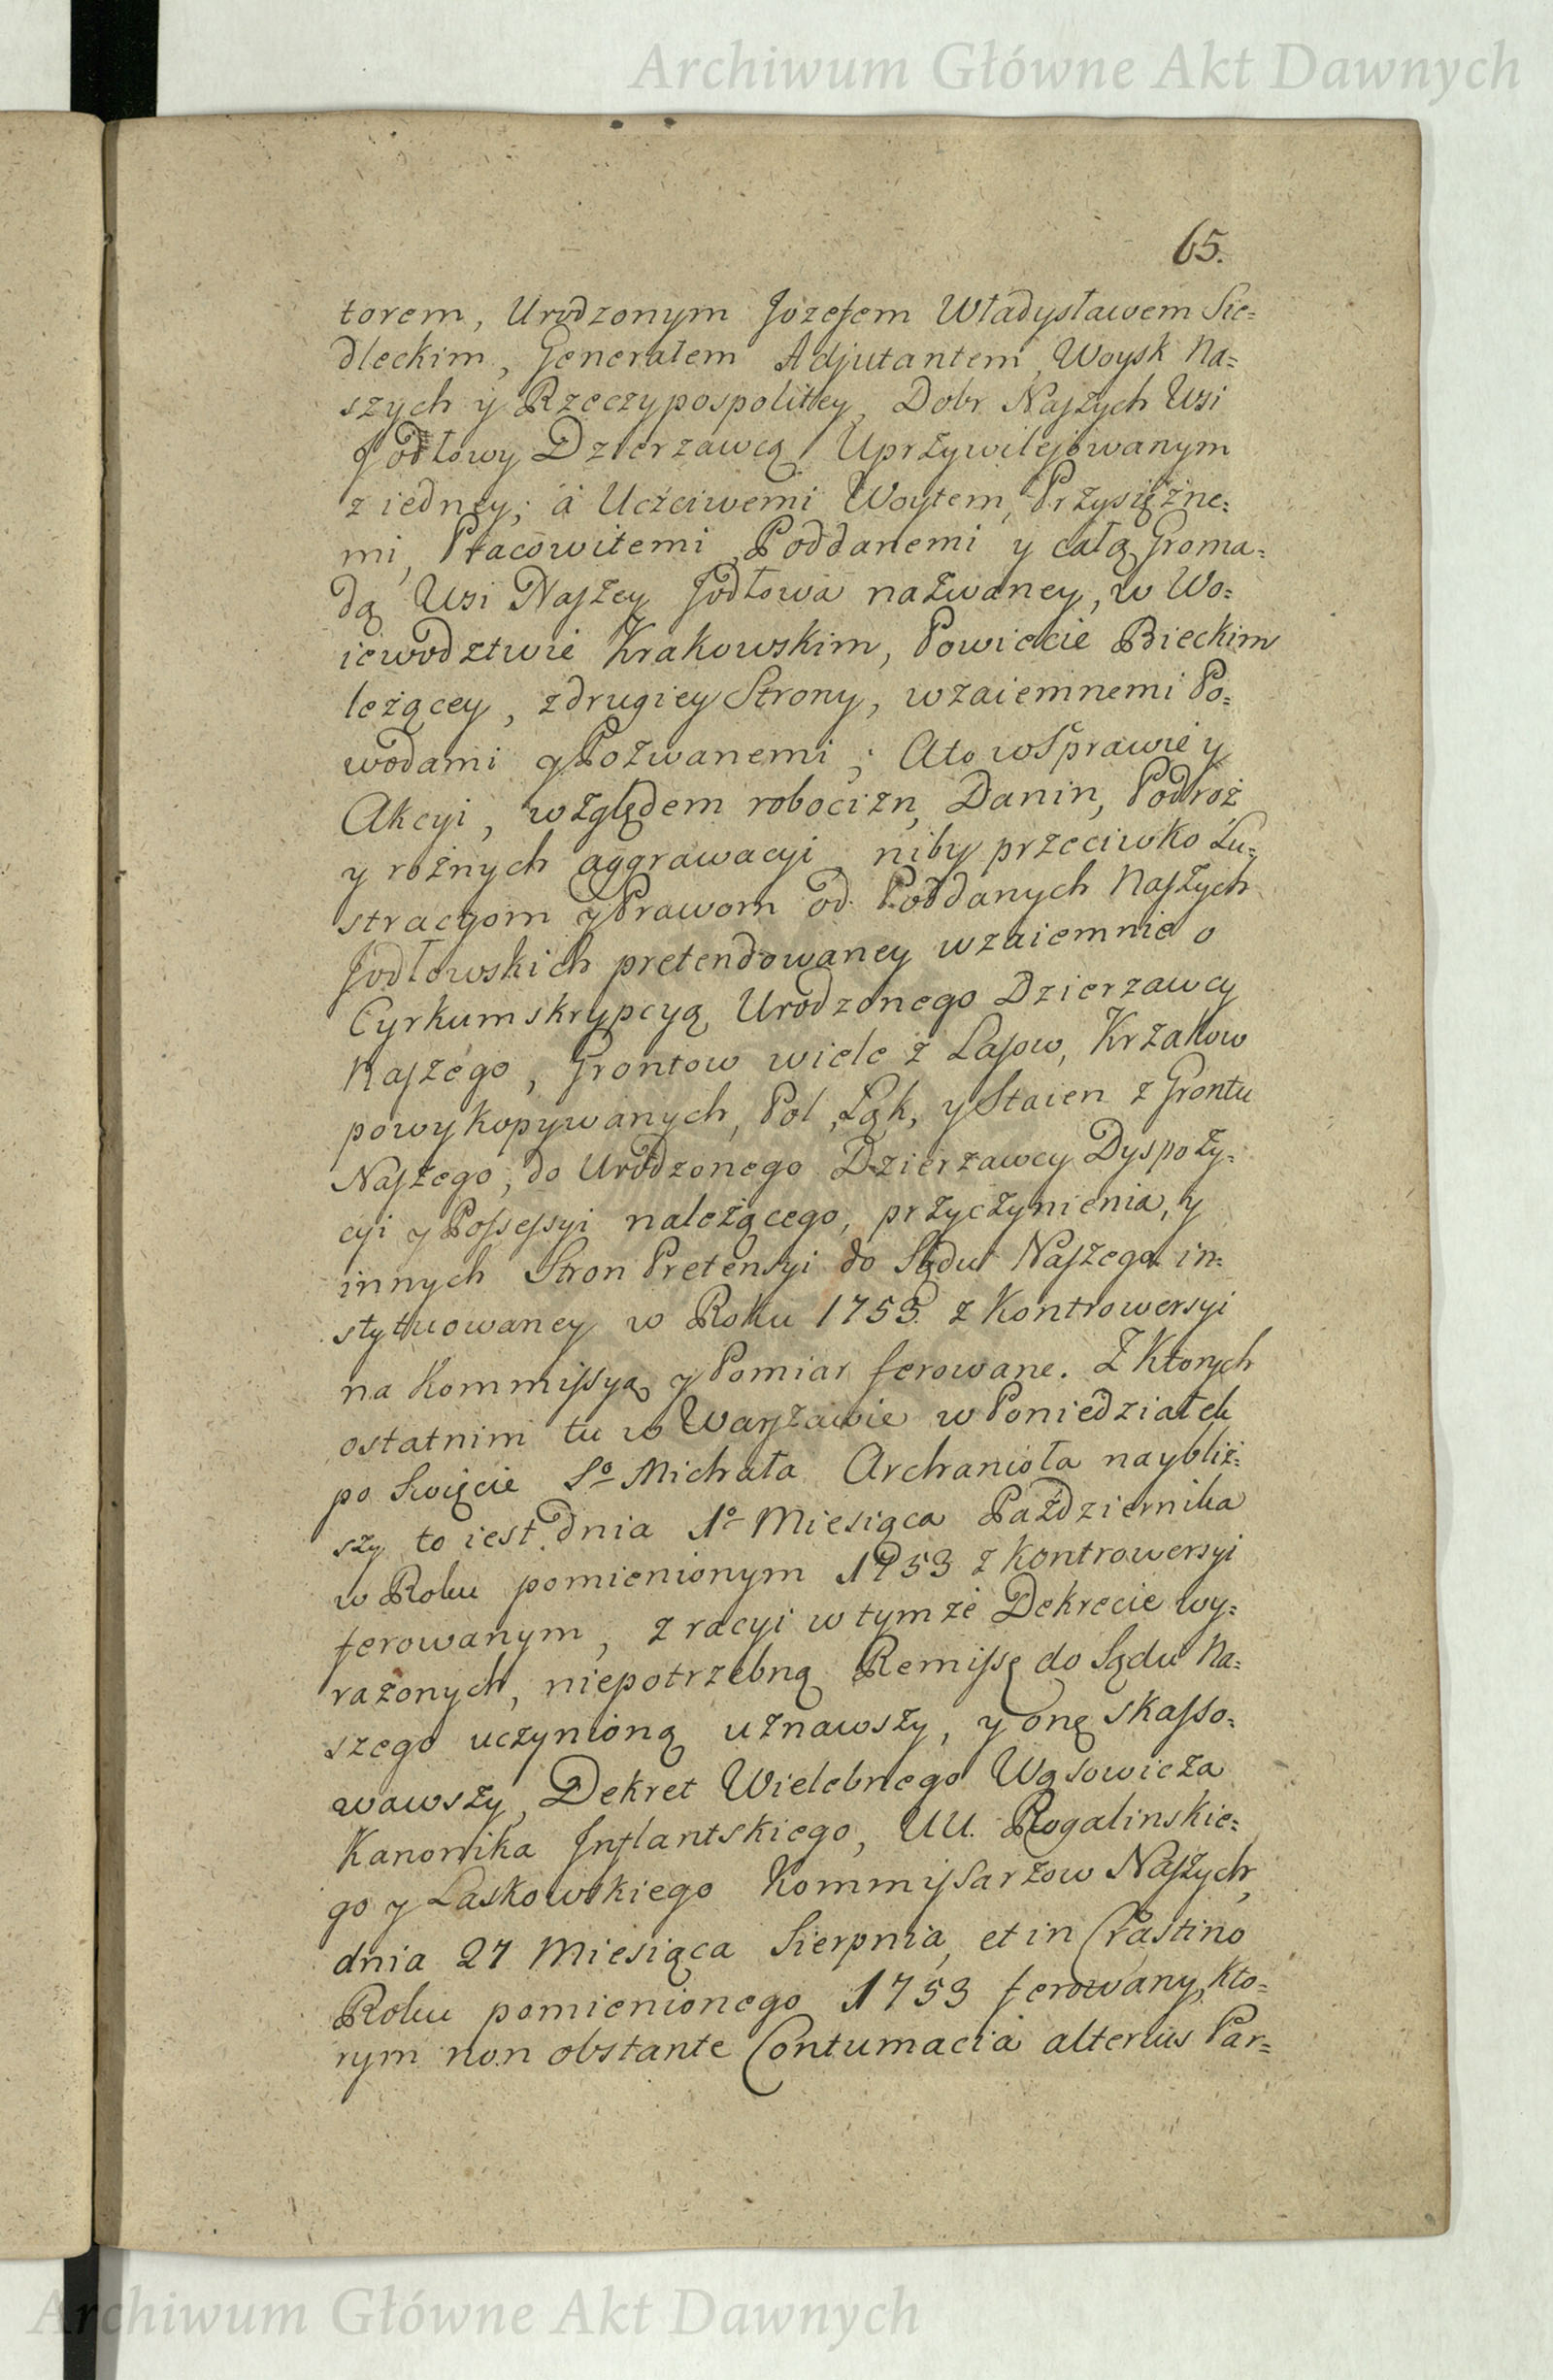 Archiwum Główne Akt Dawnych
65.
torem, Urodzonym Jozefem Władysławem Sie=
dleckim, Generałem Adjutantem, Woysk Na=
szych y Rzeczypospolitey, Dobr Naszych Wsi
Jodłowy Dzierzawcą Uprzywilejowanym
z iedney; á Uczciwemi Woytem, Przysięzne=
mi, Pracowitemi Poddanemi y całą Groma=
dą Wsi Naszey Jodłowa nazwaney, w Wo=
iewodztwie Krakowskim, Powiecie Bieckim
leżącey, z drugiey Strony, wzaiemnemi Po=
wodami y Pozwanemi; A to w Sprawie y
Akcyi, względem robocizn, Danin, Podroż
y rożnych aggrawacyi, niby przeciwko Lu=
stracyom y Prawom od Poddanych Naszych
Jodłowskich pretendowaney wzaiemnie o
Cyrkumskrypcyą Urodzonego Dzierzawcy
Naszego, Grontow wiele z Lasow, Krzakow
powykopywanych, Pol, Łąk, y Staien z Grontu
Naszego, do Urodzonego Dzierzawcy Dyspozy=
cyi y Possessyi należącego, przyczynienia, y
innych Stron Pretensyi do Sądu Naszego in=
stytuowaney w Roku 1753. z Kontrowersyi
na Kommissyą y Pomiar ferowane. Z Ktorych
ostatnim tu w Warszawie w Poniedziałek
po Swięcie So Michała Archanioła naybliż=
szy to iest dnia 1o Miesiąca Października
w Roku pomienionym 1753 z Kontrowersyi
ferowanym, z racyi w tymże Dekrecie wy=
rażonych, niepotrzebną Remissę do Sądu Na=
szego uczynioną uznawszy, y onę skasso=
wawszy, Dekret Wielebnego Wąsowicza
Kanonika Inflantskiego, UU. Rogalinskie=
go y Laskowskiego Kommissarzow Naszych,
dnia 27 Miesiąca Sierpnia, et in Crastino
Roku pomienionego 1753 ferowany, kto=
rym non obstante Contumacia alterius Par=
Archiwum Główne Akt Dawnych